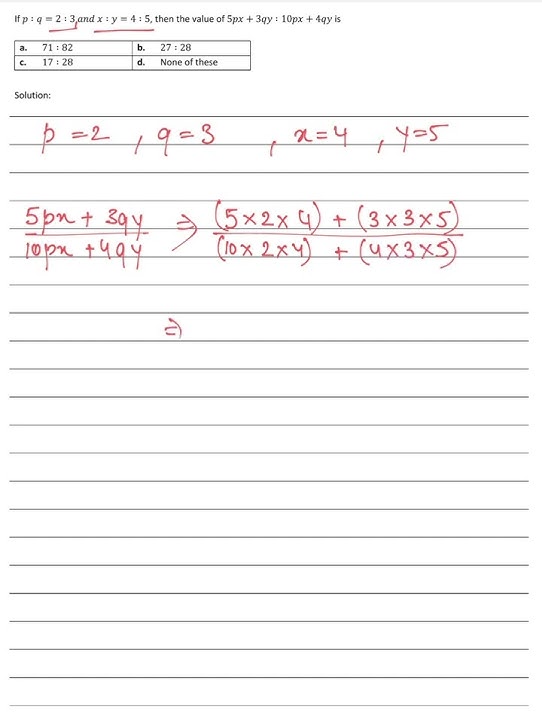 If p : q = 2 : 3 and x : y = 4 : 5, then the value of 5px + 3qy : 10px + 4qy is
a. 71 : 82 b. 27 : 28
c. 17 : 28 d. None of these
Solution:
p = 2 , q = 3 , x = 4 , y = 5
5px + 3qy ⇒ (5 × 2 × 4) + (3 × 3 × 5)
10px + 4qy (10 × 2 × 4) + (4 × 3 × 5)
⇒